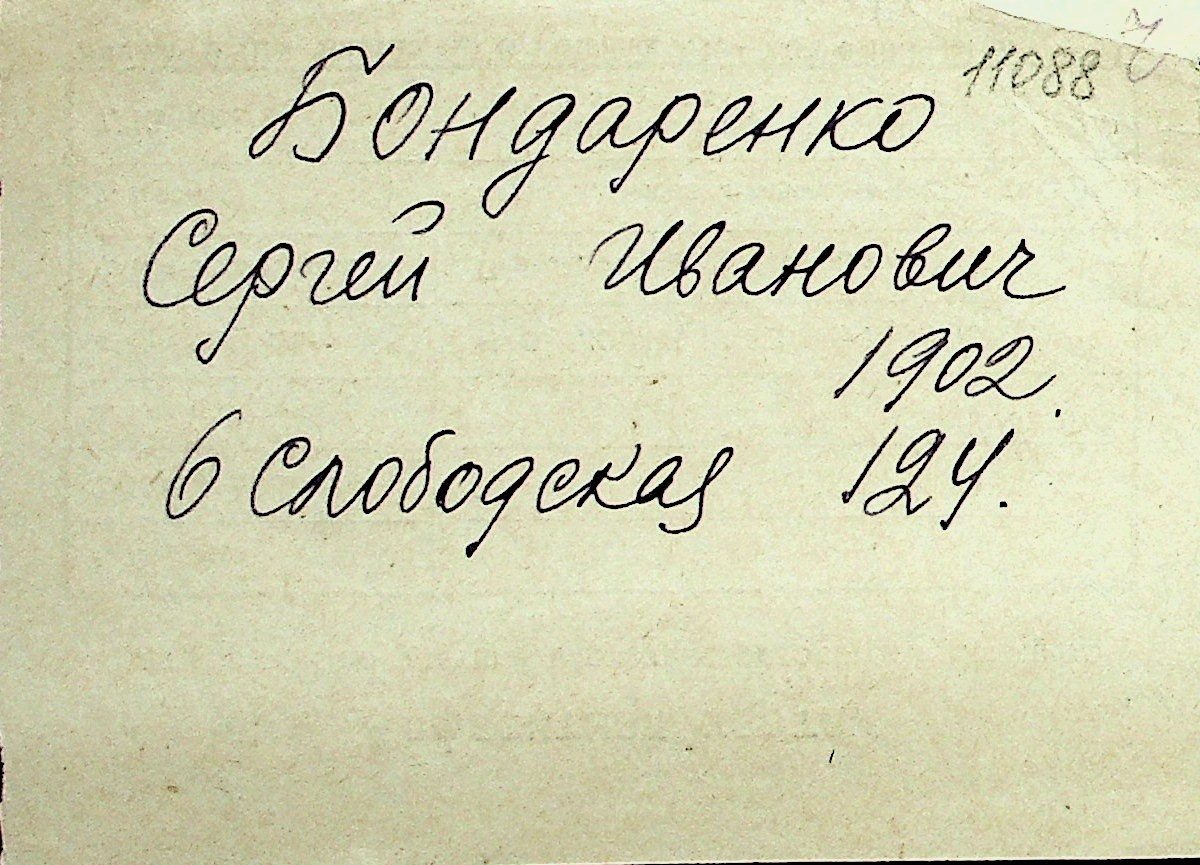 11088
Бондаренко
Сергей Иванович
1902.
6 Слободская 124.